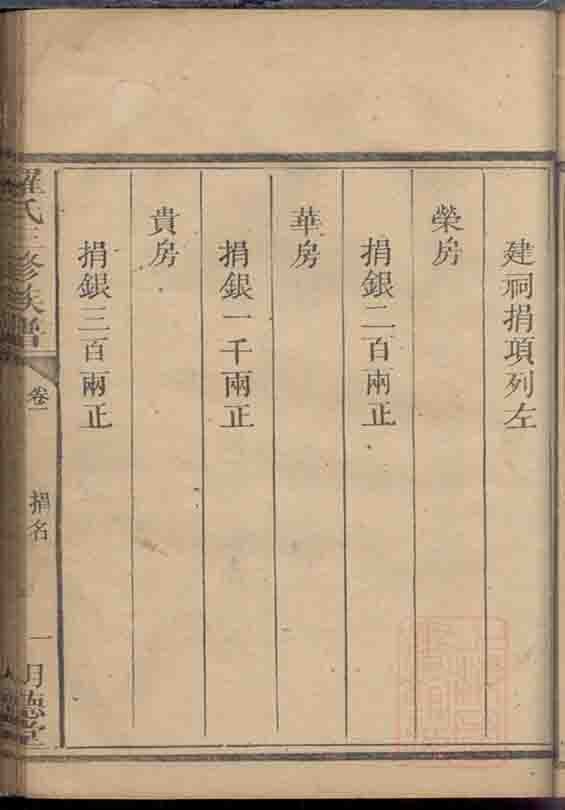 建祠捐項列左
榮房
捐銀二百兩正
華房
捐銀一千兩正
貴房
捐銀三百兩正
羅氏三修族譜
卷一
捐名
一
明德堂